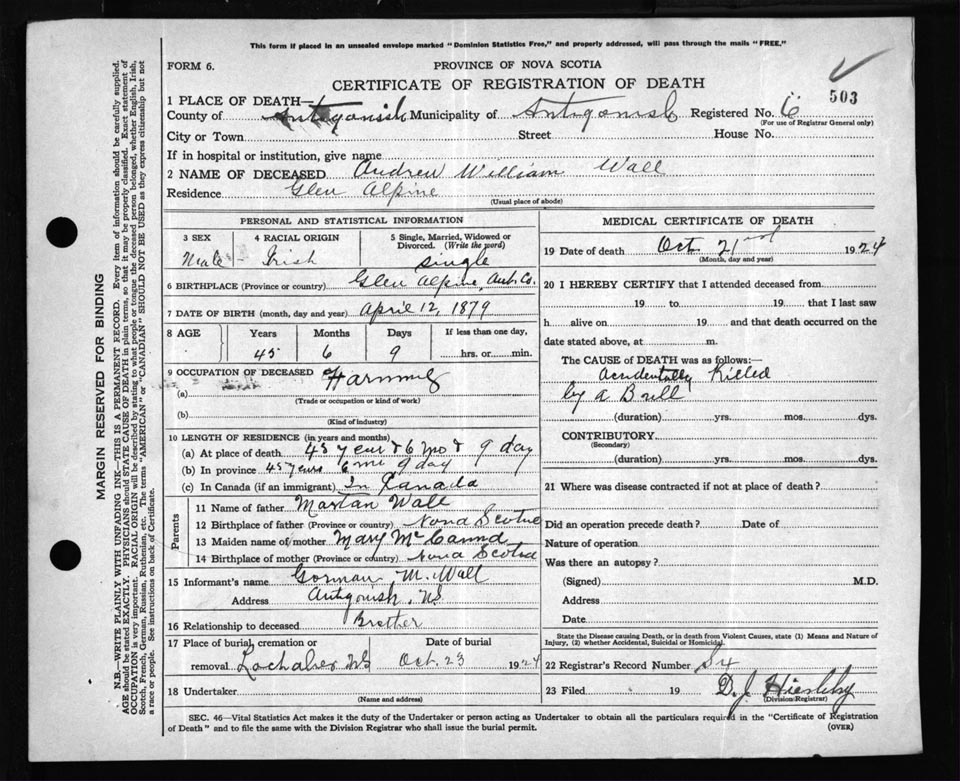 This form if placed in an unsealed envelope marked "Dominion Statistics Free," and properly addressed, will pass through the mails "FREE."
FORM 6.
PROVINCE OF NOVA SCOTIA
CERTIFICATE OF REGISTRATION OF DEATH
503
1 PLACE OF DEATH—
County of Antigonish Municipality of Antigonish Registered No. 6
(For use of Registrar General only)
City or Town Street House No.
If in hospital or institution, give name
2 NAME OF DECEASED Andrew William Wall
Residence Glen Alpine
(Usual place of abode)
PERSONAL AND STATISTICAL INFORMATION
3 SEX 4 RACIAL ORIGIN 5 Single, Married, Widowed or
Divorced. (Write the word)
Male - Irish single
6 BIRTHPLACE (Province or country) Glen Alpine, Ant. Co.
7 DATE OF BIRTH (month, day and year) April 12, 1879
8 AGE Years Months Days If less than one day,
45 6 9 hrs. or min.
9 OCCUPATION OF DECEASED
(a)
(Trade or occupation or kind of work)
(b)
(Kind of industry)
10 LENGTH OF RESIDENCE (in years and months)
(a) At place of death 45 year & 6 mo & 9 day
(b) In province 45 years 6 9 day
(c) In Canada (if an immigrant) In Canada
Parents
11 Name of father Martan Wall
12 Birthplace of father (Province or country) Nova Scotia
13 Maiden name of mother Mary
14 Birthplace of mother (Province or country) Nova Scotia
15 Informant's name Gorman M. Wall
Address Antigonish, NS
16 Relationship to deceased Brother
17 Place of burial, cremation or Date of burial
removal Lochaber NS Oct. 23 1924
18 Undertaker
(Name and address)
MEDICAL CERTIFICATE OF DEATH
19 Date of death Oct 21 1924
(Month, day and year)
20 I HEREBY CERTIFY that I attended deceased from
19 to 19 that I last saw
h alive on 19 and that death occurred on the
date stated above, at m.
The CAUSE of DEATH was as follows:—
Accidentally Killed
by a Bull
(duration) yrs. mos. dys.
CONTRIBUTORY
(Secondary)
(duration) yrs. mos. dys.
21 Where was disease contracted if not at place of death?
Did an operation precede death? Date of
Nature of operation
Was there an autopsy?
(Signed) M.D.
Address
Date
State the Disease causing Death, or in death from Violent Causes, state (1) Means and Nature of
Injury, (2) whether Accidental, Suicidal or Homicidal.
22 Registrar's Record Number
23 Filed 19 D. J.
(Division Registrar)
SEC. 46—Vital Statistics Act makes it the duty of the Undertaker or person acting as Undertaker to obtain all the particulars required in the "Certificate of Registration
of Death" and to file the same with the Division Registrar who shall issue the burial permit.
(OVER)
MARGIN RESERVED FOR BINDING
N.B.—WRITE PLAINLY WITH UNFADING INK—THIS IS A PERMANENT RECORD. Every item of information should be carefully supplied.
AGE should be stated EXACTLY. PHYSICIANS should STATE CAUSE OF DEATH in plain terms, so that it may be properly classified. Exact statement of
OCCUPATION is very important. RACIAL ORIGIN will be described by stating to what people or tongue the deceased person belonged, whether English, Irish,
Scotch, French, German, Russian, Ruthenian, etc. The terms "AMERICAN" or "CANADIAN" SHOULD NOT BE USED as they express citizenship but not
a race or people. See instructions on back of Certificate.